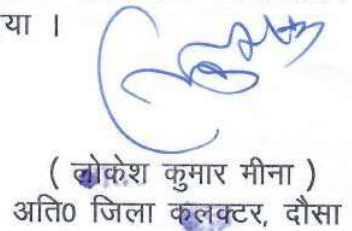 या ।
( लोकेश कुमार मीना )
अति0 जिला कलक्टर, दौसा